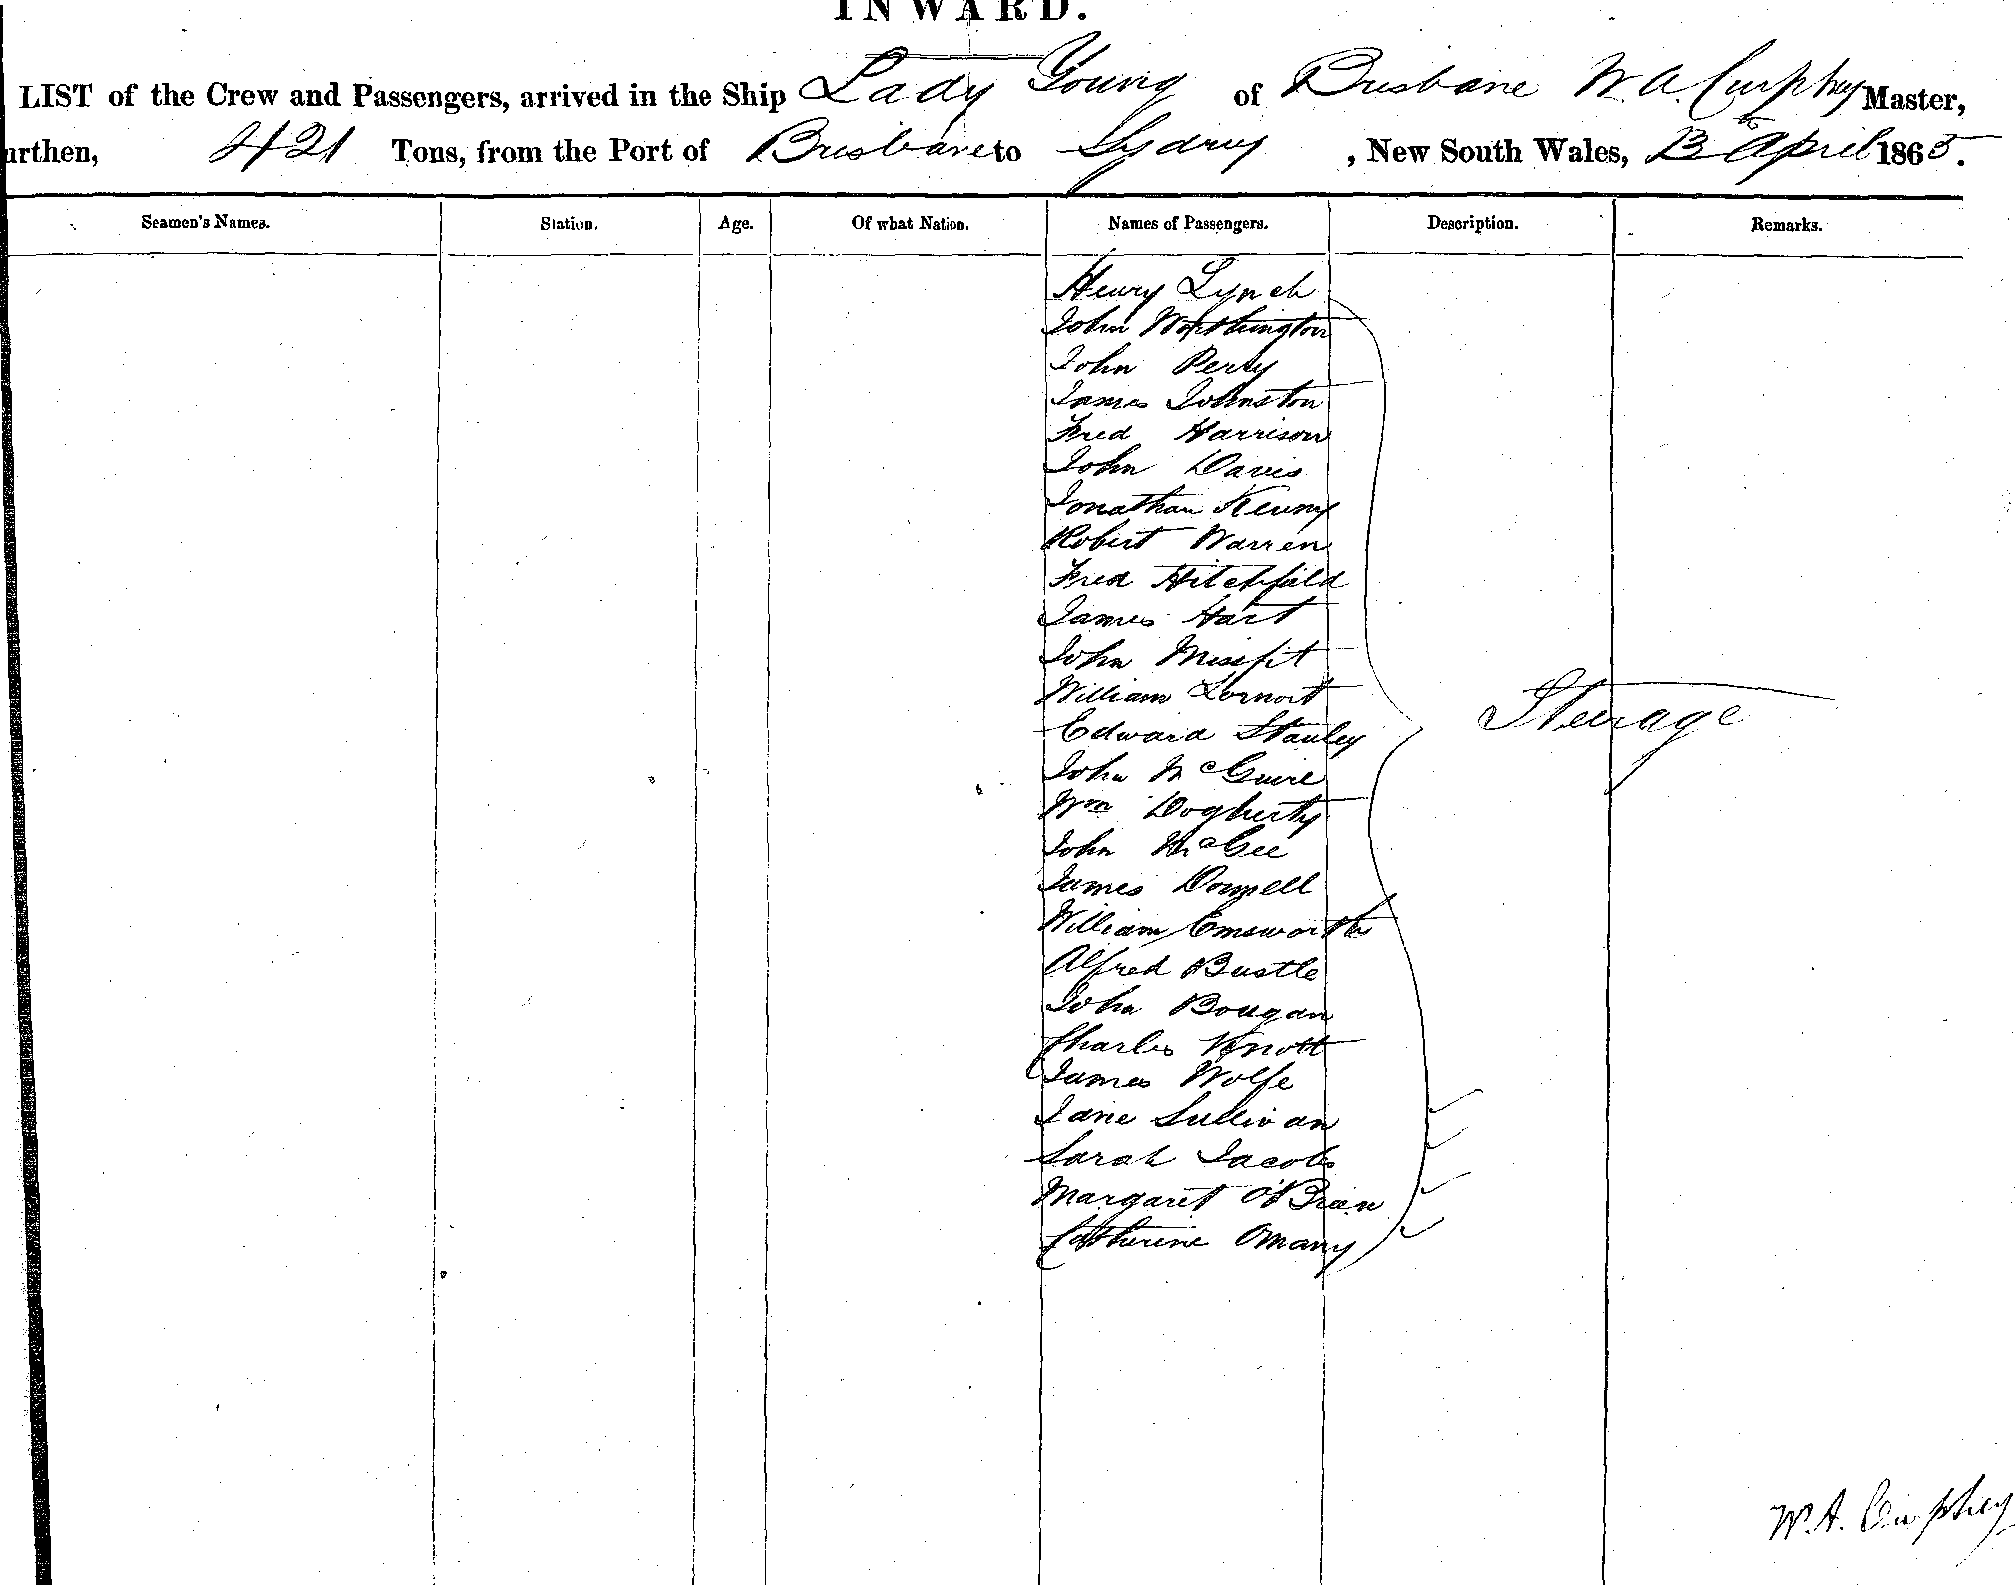 INWARD.
LIST of the Crew and Passengers, arrived in the Ship Lady Young of Brisbane W. A. Curphey Master,
urthen, 421 Tons, from the Port of Brisbane to Sydney , New South Wales, 13th April 1865.
Seamen's Names. Station. Age. Of what Nation. Names of Passengers. Description. Remarks.
Henry Lynch
John Worthington
John Perry
James Johnston
Fred Harrison
John Davis
Jonathan Kenny
Robert Warren
Fred Hitchfield
James Hart
John Missfit
William Lornort
Edward Stanley
Steerage
John McGuire
Wm Dogherty
John McGee
James Donnell
William Emsworth
Alfred Bustle
John Bougan
Charles Knott
James Wolfe
Jane Sullivan
Sarah Jacobs
Margaret O'Brien
Catherine Omany
W. A. Curphey